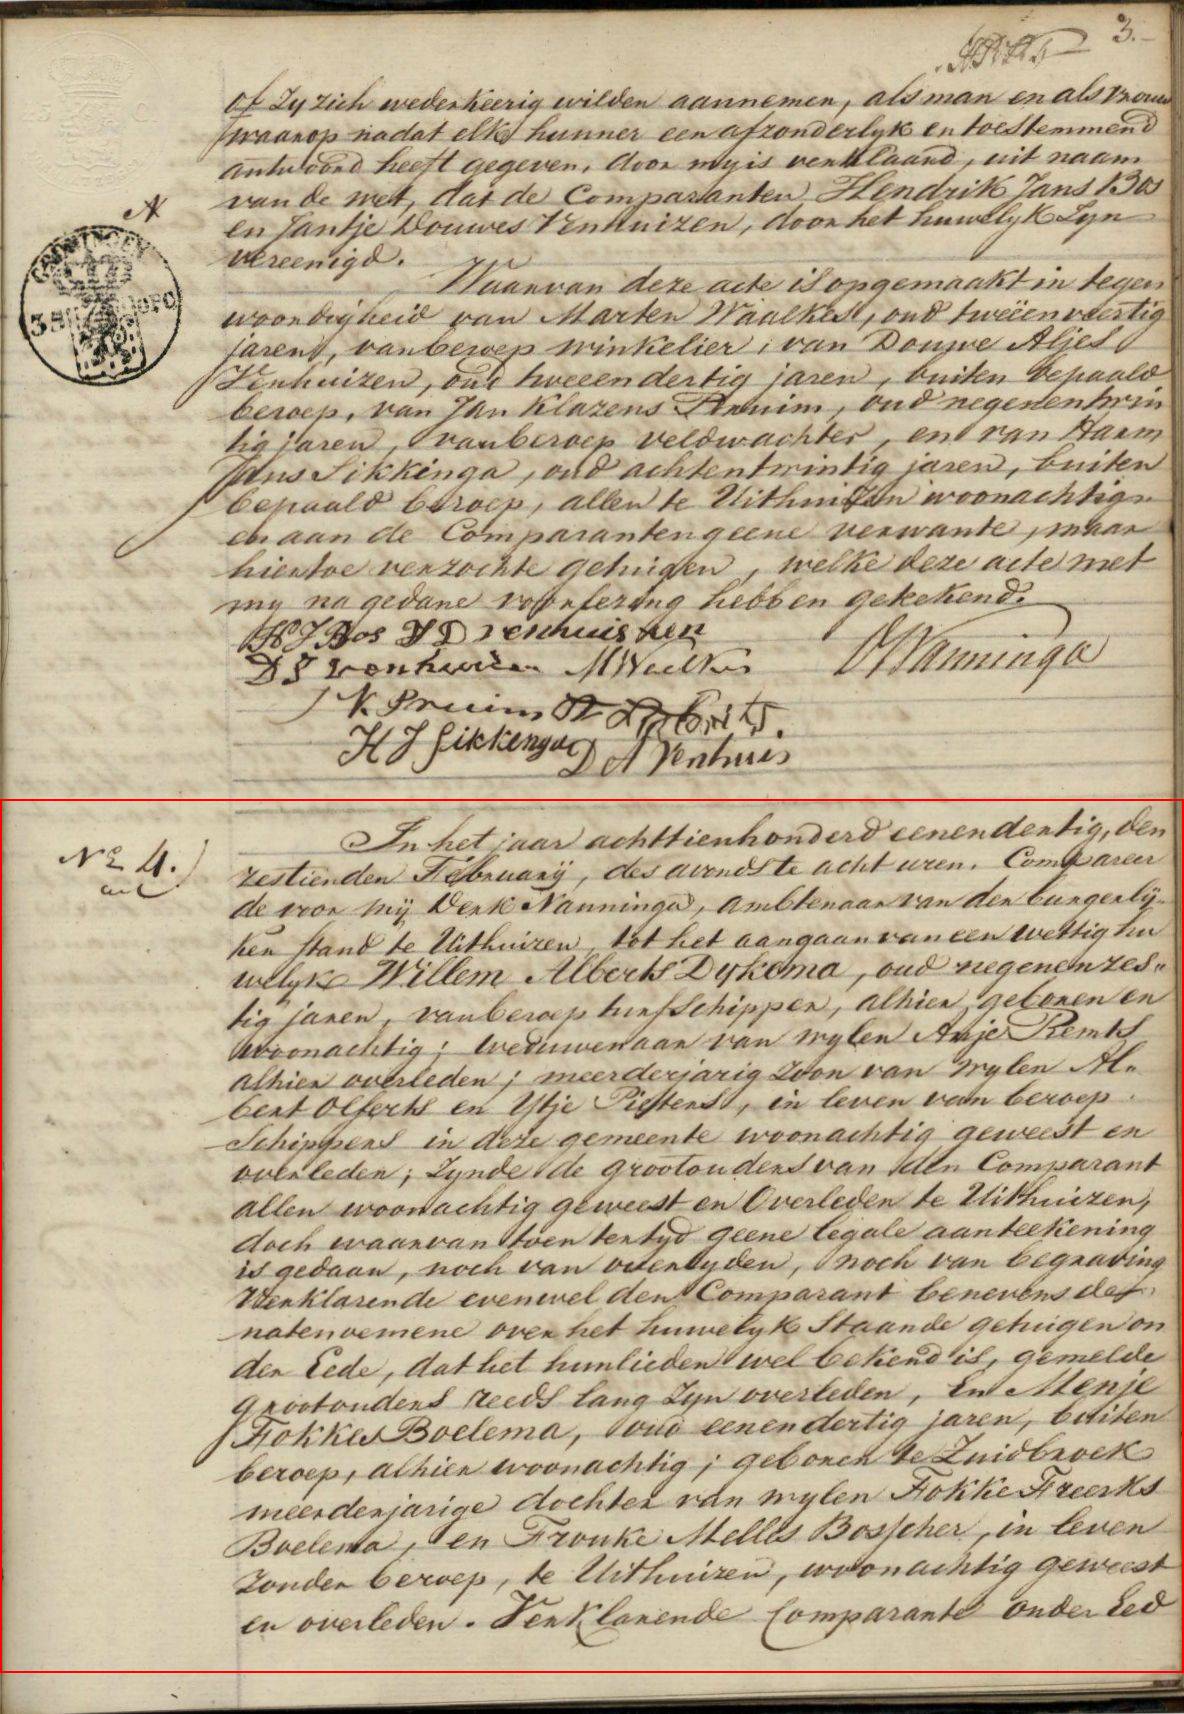 3.-
of Zy zich wederkeerig wilden aannemen, als man en als vrouw
waarop nadat elk hunner een afzonderlyk en toestemmend
antwoord heeft gegeven, door my is verklaard, uit naam
van de wet, dat de Comparanten Hendrik Jans Bos
en Jantje Douwes Venhuizen, door het huwelyk Zyn
vereenigd.
Waarvan deze acte is opgemaakt in tegen
woordigheid van Marten Waalkes, oud tweeenveertig
jaren, van beroep winkelier, van Douwe Aljes
Venhuizen, oud tweeendertig jaren, buiten bepaald
beroep, van Jan Klazens Pruim, oud negenentwin
tig jaren, van beroep veldwachter, en van Harm
Jans Sikkinga, oud achtentwintig jaren, buiten
bepaald beroep, allen te Uithuizen woonachtig
en aan de Comparanten geene verwante, maar
hiertoe verzochte getuigen, welke deze acte met
my na gedane voorlezing hebben getekend.
HJ Bos JD venhuisen
DJ venhuisen MWaalkes Nanninga
JK Pruim
HJ Sikkenga DA Venhuis
GRONINGEN
No 4.
In het jaar achttienhonderd eenendertig, den
zestienden February, des avonds te acht uren. Compareer
de voor mij Derk Nanninga, ambtenaar van den burgerlij-
ken stand te Uithuizen, tot het aangaan van een wettig hu
welyk Willem Alberts Dykema, oud negenenzes-
tig jaren, van beroep turfschipper, alhier geboren en
woonachtig; weduwenaar van wylen Anje Remts
alhier overleden; meerderjarig zoon van wylen Al-
bert Olferts en Ytje Pieters, in leven van beroep
Schippers in deze gemeente woonachtig geweest en
overleden; Zynde de grootouders van den Comparant
allen woonachtig geweest en Overleden te Uithuizen,
doch waarvan toen tertyd geene legale aanteekening
is gedaan, noch van overlyden, noch van begraving
Verklarende evenwel den Comparant benevens de
natenoemene over het huwelyk Staande getuigen on
der Eede, dat het hunlieden wel bekend is, gemelde
grootouders reeds lang Zyn overleden, En Menje
Fokkes Boelema, oud eenendertig jaren, buiten
beroep, alhier woonachtig; geboren te Zuidbroek
meerderjarige dochter van wylen Fokke Freerks
Boelema, en Frouke Melles Bosscher, in leven
Zonder beroep, te Uithuizen, woonachtig geweest
en overleden. Verklarende Comparante onder Eed